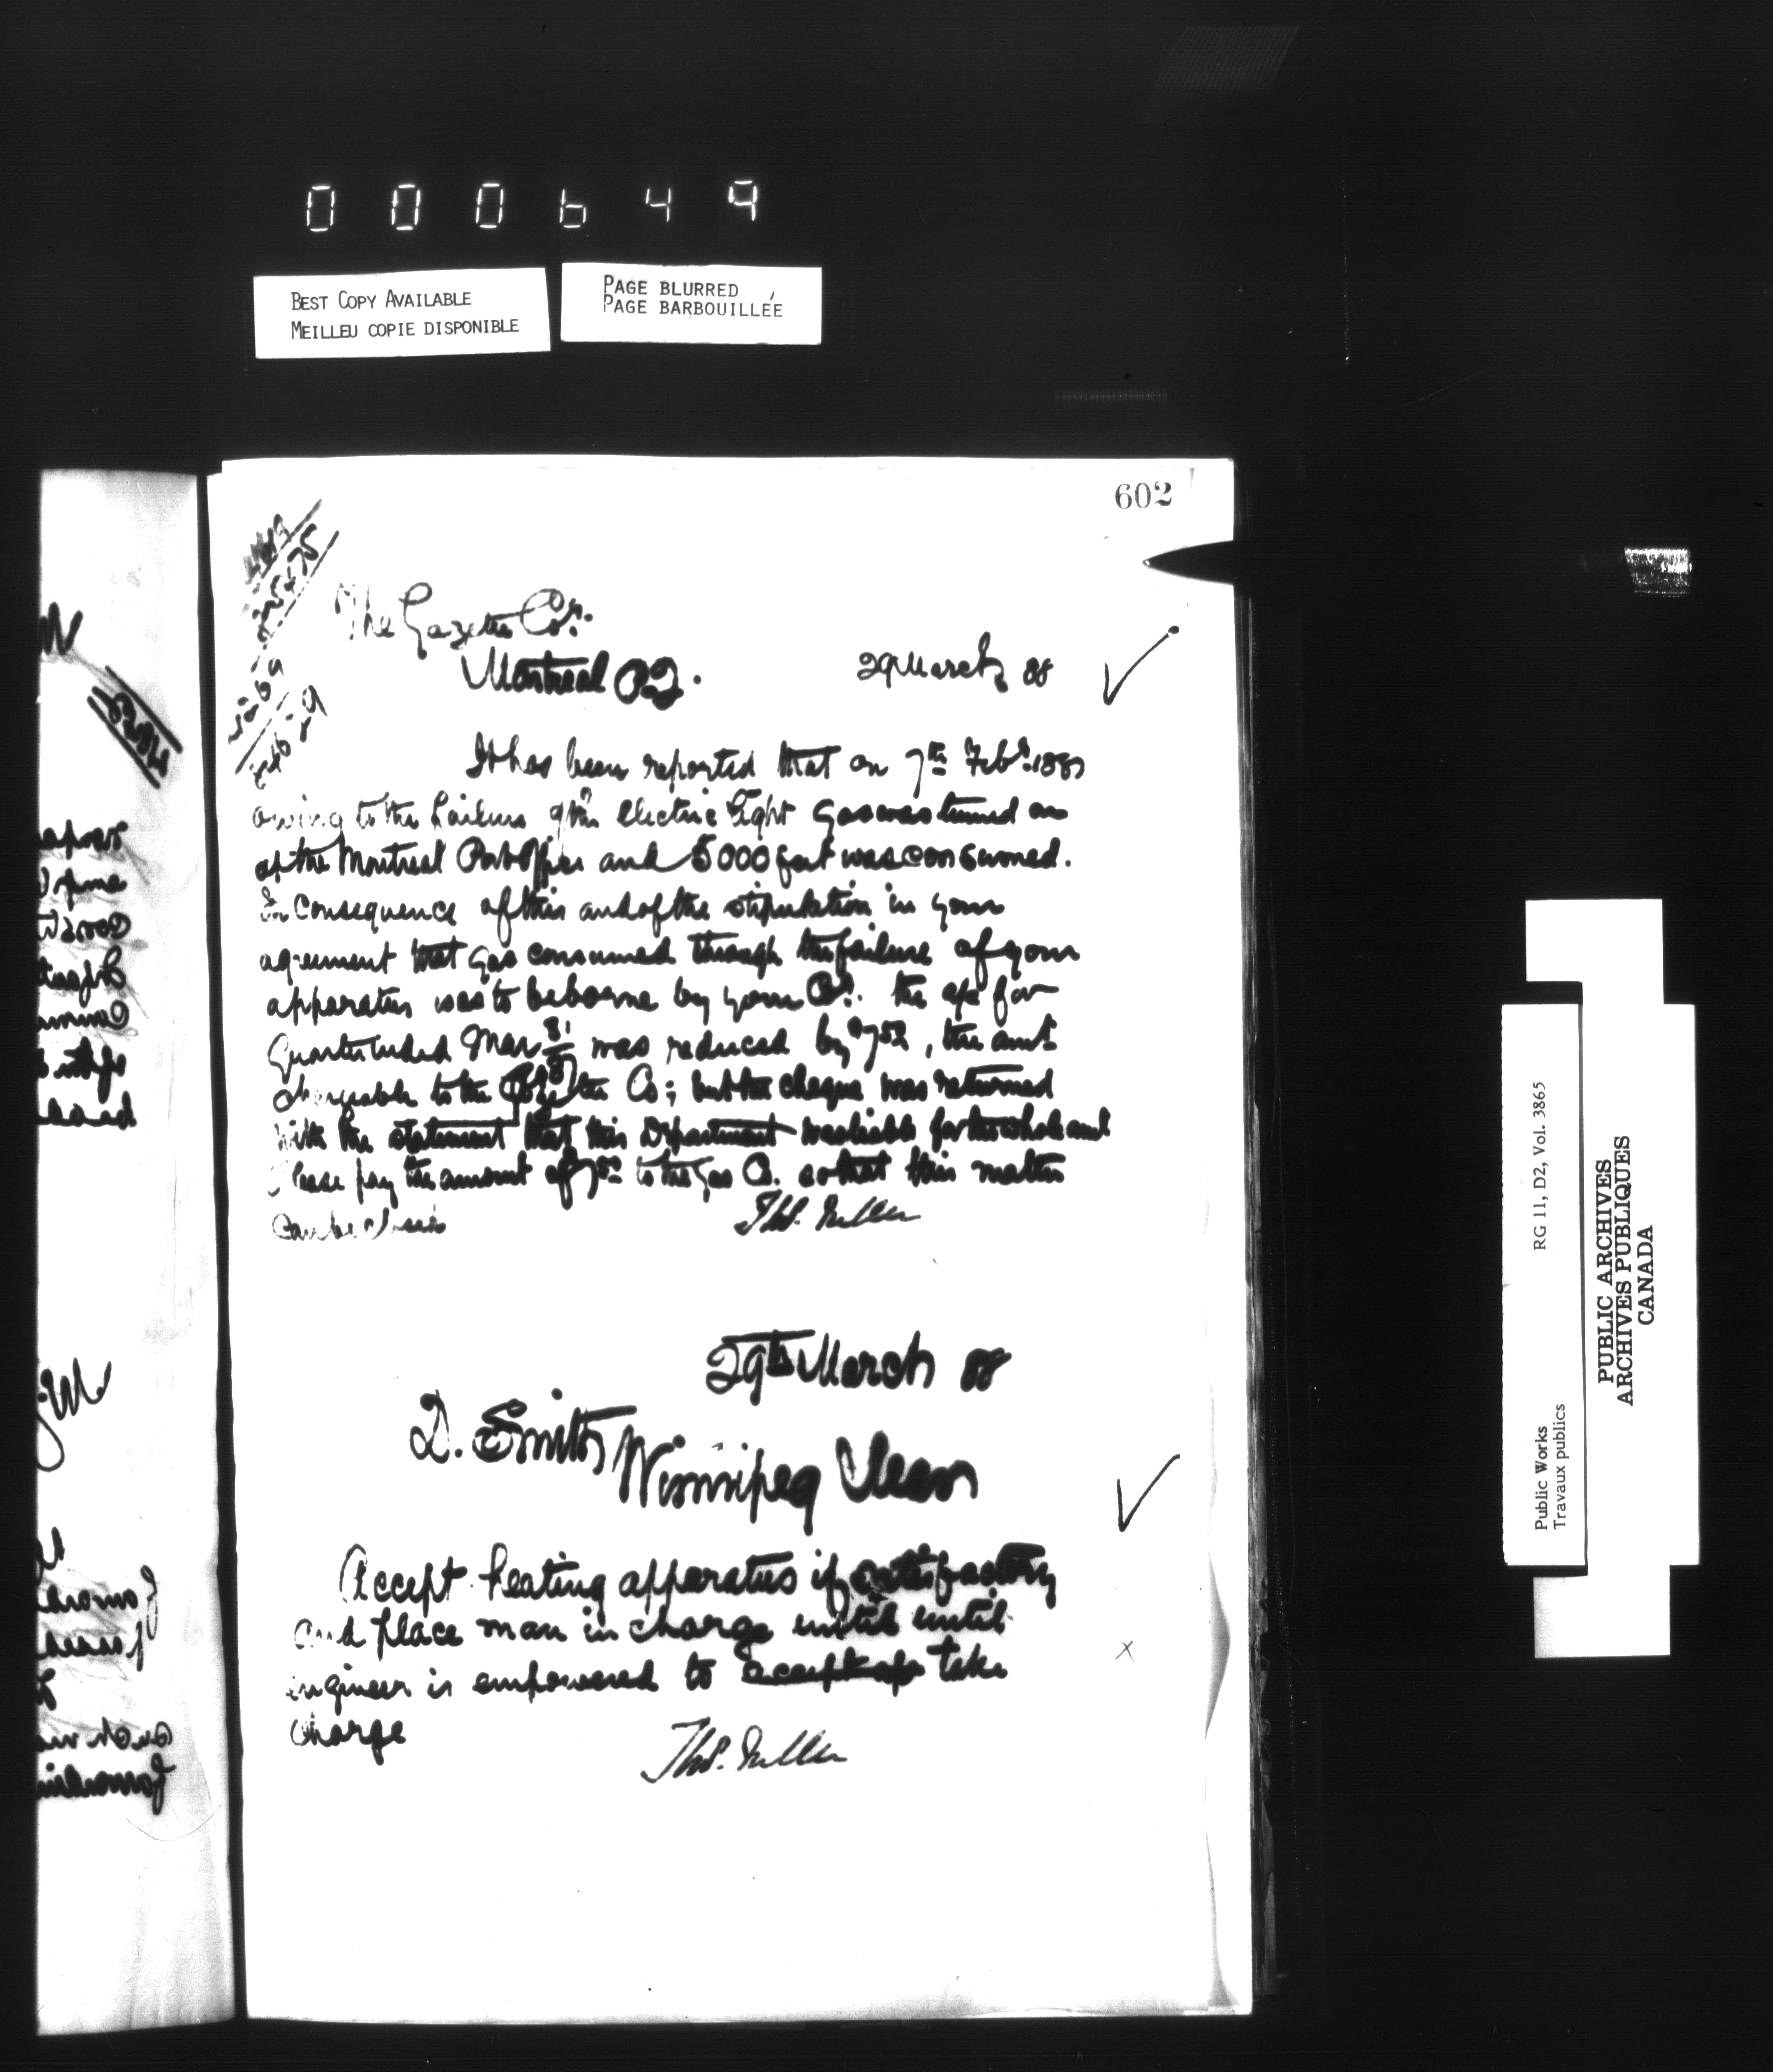 000649
BEST COPY AVAILABLE
MEILLEU COPIE DISPONIBLE
PAGE BLURRED
PAGE BARBOUILLÉE
602
The Gazette Co.
Montreal P.Q. 29 March 88
It has been reported that on 7th Feby. 1887
owing to the failure of the electric light gas was turned on
at the Montreal Post Office and 5000 feet was consumed.
In consequence of this and of the stipulation in your
agreement that gas consumed through the failure of your
apparatus was to be borne by your Co. the a/c for
quarter ended Mar 31 was reduced by $7.50, the amt
chargeable to the Gazette Co; but the cheque was returned
with the statement that this Department was liable for the whole and
Please pay the amount of 7.50 to the Gas Co. so that this matter
can be closed
29th March 88
D. Smith
Winnipeg Man
Accept heating apparatus if satisfactory
and place man in charge until until
engineer is empowered to take
charge
RG 11, D2, Vol. 3865
Public Works
Travaux publics
PUBLIC ARCHIVES
ARCHIVES PUBLIQUES
CANADA